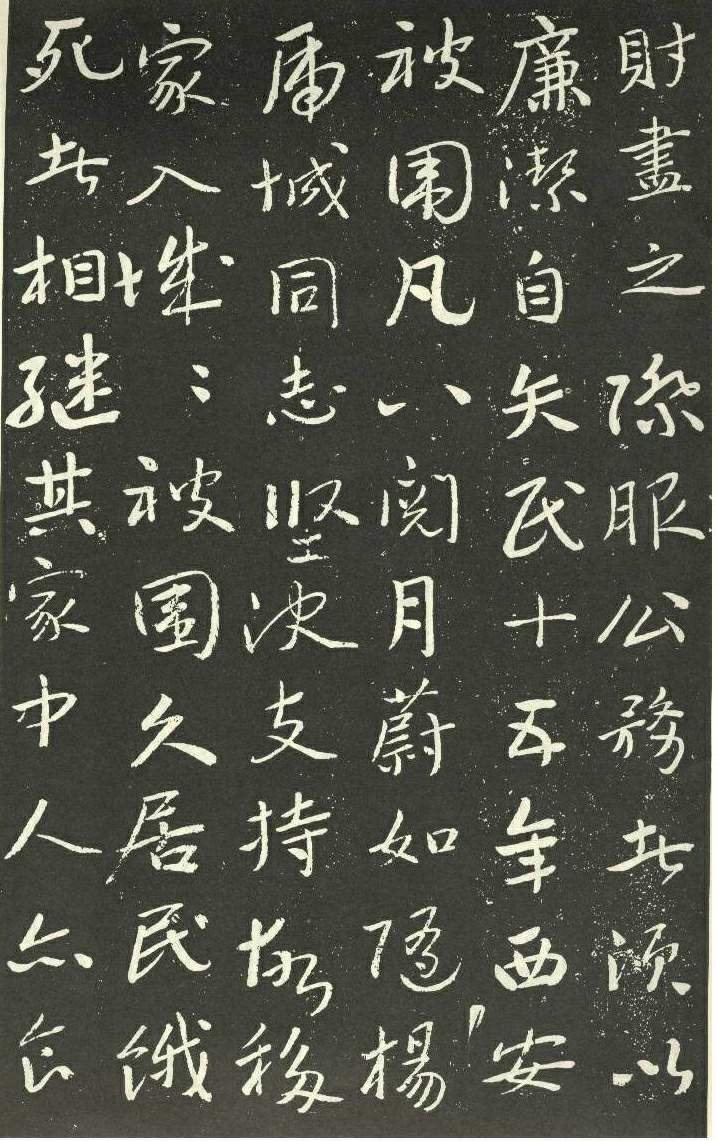 財盡之際服公務者須以
廉潔自矢民十五年西安
被围凡八閱月蔚如随楊
虎城同志坚決支持故移
家入城〻被围久居民餓
死者相継其家中人亦食